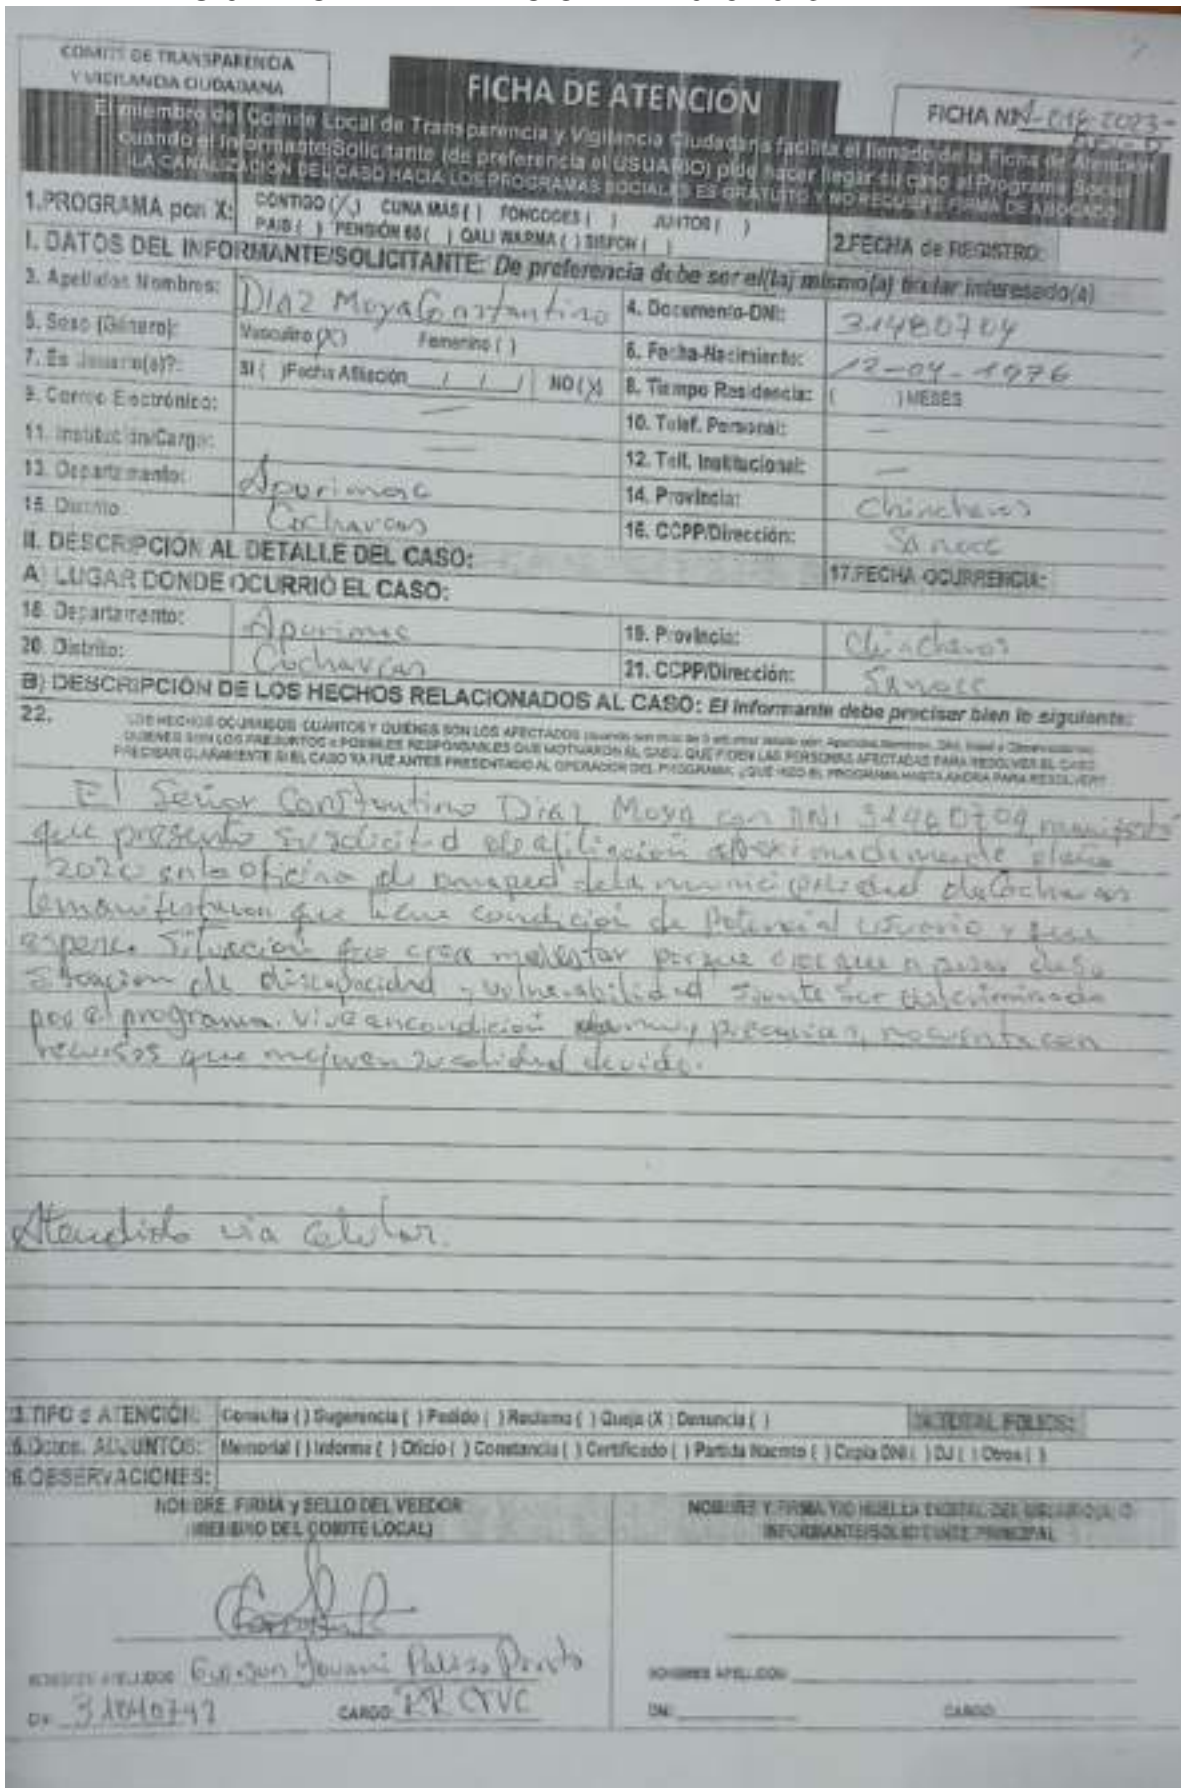 COMITE DE TRANSPARENCIA
Y VIGILANCIA CIUDADANA
FICHA DE ATENCIÓN
FICHA Nº
El miembro del Comité Local de Transparencia y Vigilancia Ciudadana facilita el llenado de la Ficha de Atención
cuando el Informante/Solicitante (de preferencia el USUARIO) pide hacer llegar su caso al Programa Social
LA CANALIZACIÓN DEL CASO HACIA LOS PROGRAMAS SOCIALES ES GRATUITO Y NO REQUIERE FIRMA DE ABOGADO
1.PROGRAMA pon X: CONTIGO (X) CUNA MAS ( ) FONCODES ( ) JUNTOS ( )
PAIS ( ) PENSIÓN 65 ( ) QALI WARMA ( ) SISFOH ( )
2.FECHA de REGISTRO:
I. DATOS DEL INFORMANTE/SOLICITANTE: De preferencia debe ser el(la) mismo(a) titular interesado(a)
3. Apellidos Nombres: Diaz Moya Constantino 4. Documento-DNI: 31480704
5. Sexo (Género): Masculino (X) Femenino ( ) 6. Fecha-Nacimiento: 12-04-1976
7. Es Usuario(a)?: SI ( )Fecha Afiliación / / / NO (X) 8. Tiempo Residencia: ( ) MESES
9. Correo Electrónico: — 10. Telef. Personal: —
11. Institución/Cargo: — 12. Telf. Institucional: —
13. Departamento: Apurimac 14. Provincia: Chincheros
15. Distrito Cocharcas 16. CCPP/Dirección:
II. DESCRIPCIÓN AL DETALLE DEL CASO: 17.FECHA OCURRENCIA:
A) LUGAR DONDE OCURRIÓ EL CASO:
18. Departamento: Apurimac 19. Provincia: Chincheros
20. Distrito: Cocharcas 21. CCPP/Dirección:
B) DESCRIPCIÓN DE LOS HECHOS RELACIONADOS AL CASO: El informante debe precisar bien lo siguiente:
22. LOS HECHOS OCURRIDOS, CUANTOS Y QUIÉNES SON LOS AFECTADOS
QUIENES SON LOS PRESUNTOS o POSIBLES RESPONSABLES QUE MOTIVARON EL CASO, QUE PIDEN LAS PERSONAS AFECTADAS PARA RESOLVER EL CASO
PRECISAR CLARAMENTE SI EL CASO YA FUE ANTES PRESENTADO AL OPERADOR DEL PROGRAMA, ¿QUE HIZO EL PROGRAMA HASTA AHORA PARA RESOLVER?
El Señor Constantino Diaz Moya con DNI 31480704 manifestó
que presento su solicitud de afiliación aproximadamente el año
2020 en la oficina de omaped de la municipalidad de Cocharcas
le manifestaron que tiene condición de Potencial usuario y que
espere. Situación que crea malestar porque cree que a pesar de su
situación de discapacidad y vulnerabilidad siente ser discriminado
por el programa. Vive en condición muy precarias, no cuenta con
recursos que mejoren su calidad de vida.
Atendido via celular.
23.TIPO d ATENCIÓN: Consulta ( ) Sugerencia ( ) Pedido ( ) Reclamo ( ) Queja (X) Denuncia ( ) 24.TOTAL FOLIOS:
25.Dctos. ADJUNTOS: Memorial ( ) Informe ( ) Oficio ( ) Constancia ( ) Certificado ( ) Partida Nacmto ( ) Copia DNI ( ) DJ ( ) Otros ( )
26.OBSERVACIONES:
NOMBRE, FIRMA y SELLO DEL VEEDOR
(MIEMBRO DEL COMITE LOCAL)
NOMBRE Y FIRMA Y/O HUELLA DIGITAL DEL USUARIO(A) O
INFORMANTE/SOLICITANTE PRINCIPAL
NOMBRES APELLIDOS: NOMBRES APELLIDOS:
DNI: CARGO: RR CTVC DNI: CARGO: